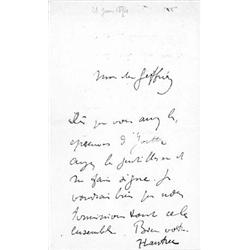 Mon cher Geffroy
Dès que vous aurez les
épreuves d'
ayez la gentillesse de
me faire signe. Je
voudrais bien que nous
 tout cela
ensemble. Bien votre